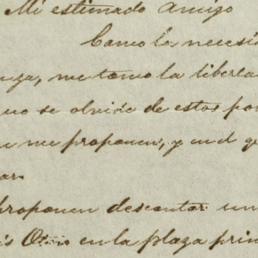 Mi estimado amigo
Como la necesi
nza, me tomo la liberta
no se olvide de estos po
me proponen, y en el q
ar.
proponen descontar un
en la plaza prin